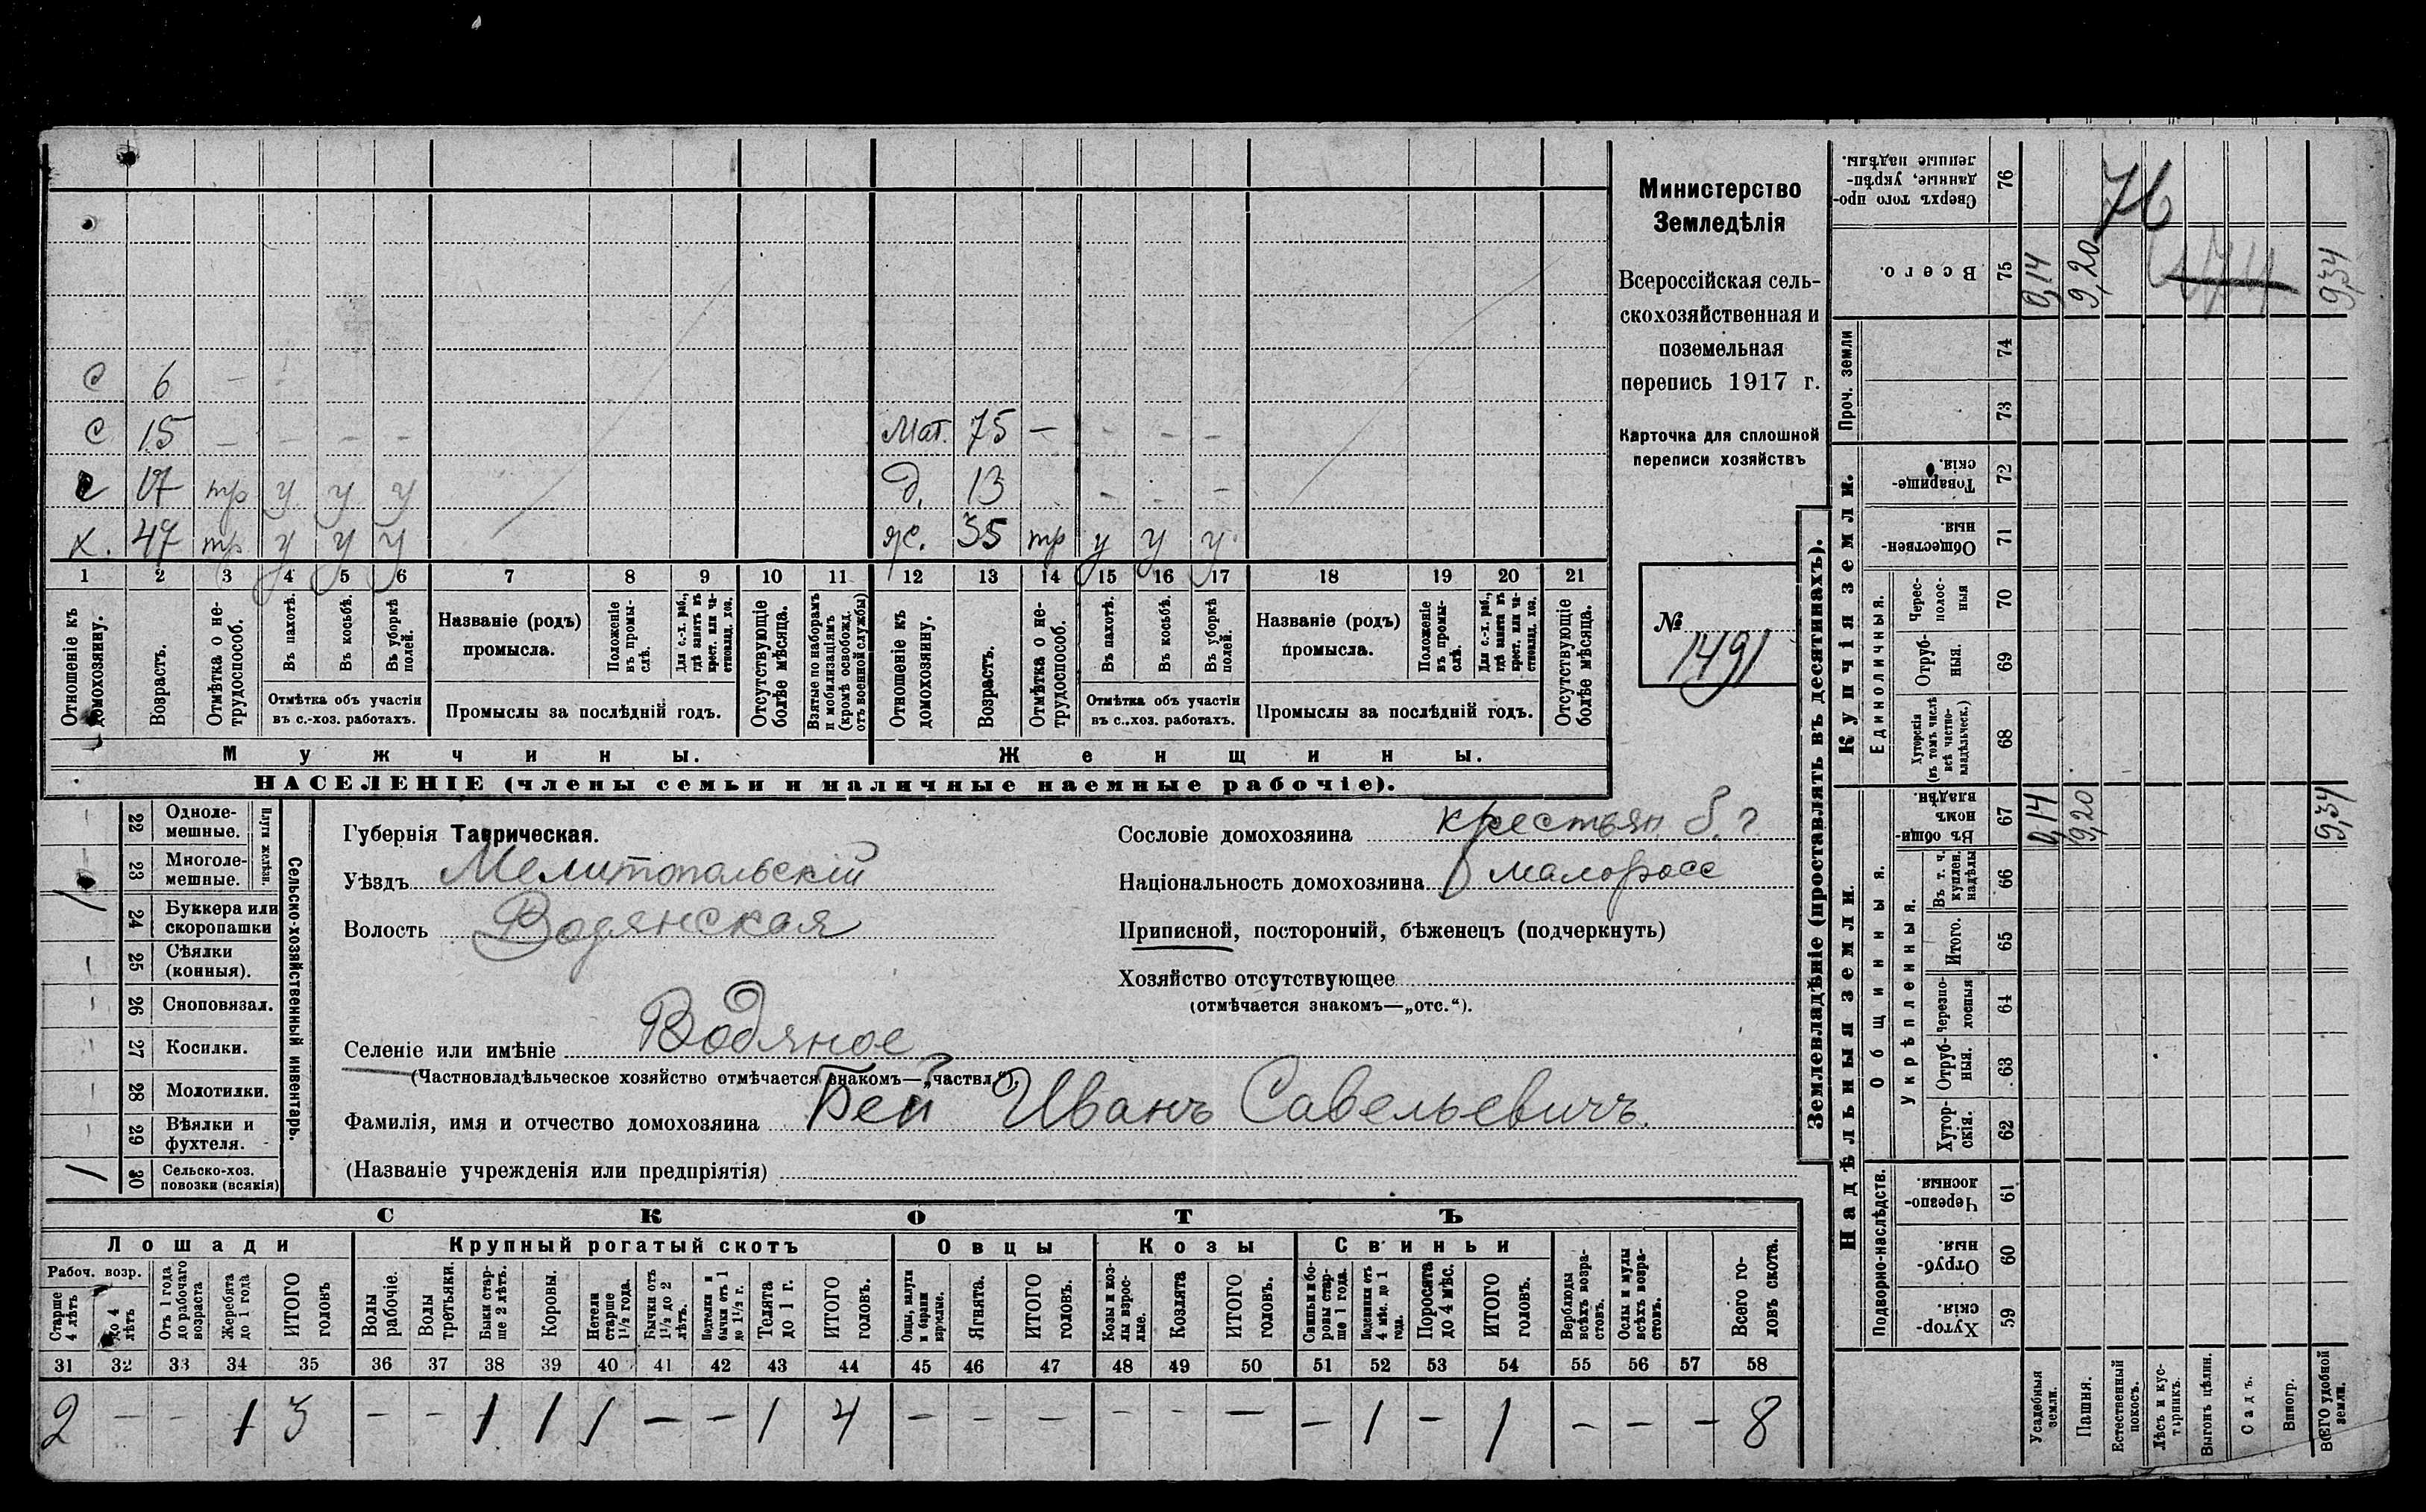 с 6 —
с 15 — — — — Мат. 75 — — — —
с 17 тр у у у д. 13 — — —
х. 47 тр у у у ж. 35 тр у у у
1 2 3 4 5 6 7 8 9 10 11 12 13 14 15 16 17 18 19 20 21
Отношеніе къ домохозяину.
Возрастъ.
Отмѣтка о не-
трудоспособ.
Въ пахотѣ.
Въ косьбѣ.
Въ уборкѣ
полей.
Отмѣтка объ участіи
въ с.-хоз. работахъ.
Названіе (родъ)
промысла.
Положеніе
въ промы-
слѣ.
Для с.-х. раб.,
гдѣ занятъ въ
крест. или ча-
стновлад. хоз.
Промыслы за послѣдній годъ.
Отсутствующіе
болѣе мѣсяца.
Взятые по наборамъ
и мобилизаціямъ
(кромѣ освобожд.
отъ военной службы)
Отношеніе къ
домохозяину.
Возрастъ.
Отмѣтка о не-
трудоспособ.
Въ пахотѣ.
Въ косьбѣ.
Въ уборкѣ
полей.
Отмѣтка объ участіи
въ с.-хоз. работахъ.
Названіе (родъ)
промысла.
Положеніе
въ промы-
слѣ.
Для с.-х. раб.,
гдѣ занята въ
крест. или ча-
стновлад. хоз.
Промыслы за послѣдній годъ.
Отсутствующіе
болѣе мѣсяца.
Мужчины. Женщины.
НАСЕЛЕНІЕ (члены семьи и наличные наемные рабочіе).
Министерство
Земледѣлія
Всероссійская сель-
скохозяйственная и
поземельная
перепись 1917 г.
Карточка для сплошной
переписи хозяйствъ
№
1491
Сельско-хозяйственный инвентарь.
Плуги желѣзн.
— 22 Одноле-
мешные.
1 23 Многоле-
мешные.
24 Буккера или
скоропашки
— 25 Сѣялки
(конныя).
— 26 Сноповязал.
— 27 Косилки.
— 28 Молотилки.
— 29 Вѣялки и
фухтеля.
1 30 Сельско-хоз.
повозки (всякія)
Губернія Таврическая.
Уѣздъ Мелитопольскій
Волость Водянская
Сословіе домохозяина крестьян
Національность домохозяина малоросс
Приписной, посторонній, бѣженецъ (подчеркнуть)
Хозяйство отсутствующее
(отмѣчается знакомъ—„отс.“).
Селеніе или имѣніе Водяное
(Частновладѣльческое хозяйство отмѣчается знакомъ—„частвл.“).
Фамилія, имя и отчество домохозяина Бей Иванъ Савельевичъ.
(Названіе учрежденія или предпріятія)
СКОТЪ
Лошади Крупный рогатый скотъ Овцы Козы Свиньи
Рабоч. возр.
Старше
4 лѣтъ
до 4
лѣтъ
Отъ 1 года
до рабочаго
возраста
Жеребята
до 1 года
ИТОГО
головъ
Волы
рабочіе.
Волы
третьяки.
Быки стар-
ше 2 лѣтъ.
Коровы.
Нетели
старше
1½ года.
Бычки отъ
1½ до 2
лѣтъ.
Подтелки и
бычки отъ 1
до 1½ г.
Телята
до 1 г.
ИТОГО
головъ.
Овцы, валухи
и бараны
взрослые.
Ягнята.
ИТОГО
головъ.
Козы и коз-
лы взрос-
лые.
Козлята
ИТОГО
головъ.
Свиньи и бо-
ровы стар-
ше 1 года.
Подсвинки отъ
4 мѣс. до 1
года.
Поросята
до 4 мѣс.
ИТОГО
головъ.
Верблюды
всѣхъ возра-
стовъ.
Ослы и мулы
всѣхъ возра-
стовъ.
Всего го-
ловъ скота.
31 32 33 34 35 36 37 38 39 40 41 42 43 44 45 46 47 48 49 50 51 52 53 54 55 56 57 58
2 — — 1 3 — — 1 1 1 — — 1 4 — — — — — — — 1 — 1 — — — 8
Землевладѣніе (проставлять въ десятинахъ).
Надѣльныя земли. Купчія земли. Проч. земли
Подворно-наслѣдств. Общинныя. Единоличныя.
Укрѣпленныя.
Хутор-
скія. 59
Отруб-
ныя. 60
Черезпо-
лосныя. 61
Хутор-
скія. 62
Отруб-
ныя. 63
Черезпо-
лосныя 64
Итого. 65
Въ т. ч.
куплен.
надѣлы 66
Въ общи-
номъ
владѣн. 67 0,14 9,20 9,34
Хуторскія
(въ томъ числѣ
всѣ частно-
владѣльческ.) 68
Отруб-
ныя. 69
Черес-
полос-
ныя 70
Обществен-
ныя. 71
Товарище-
скія. 72
73
74
Всего. 75 0,14 9,20 9,34
Сверхъ того про-
данные, укрѣп-
ленные надѣлы. 76
76
Усадебныя
земли.
Пашня.
Естественный
покосъ.
Лѣсъ и кус-
тарникъ.
Выгонъ цѣлин.
Садъ.
Виногр.
ВСЕГО удобной
земли.